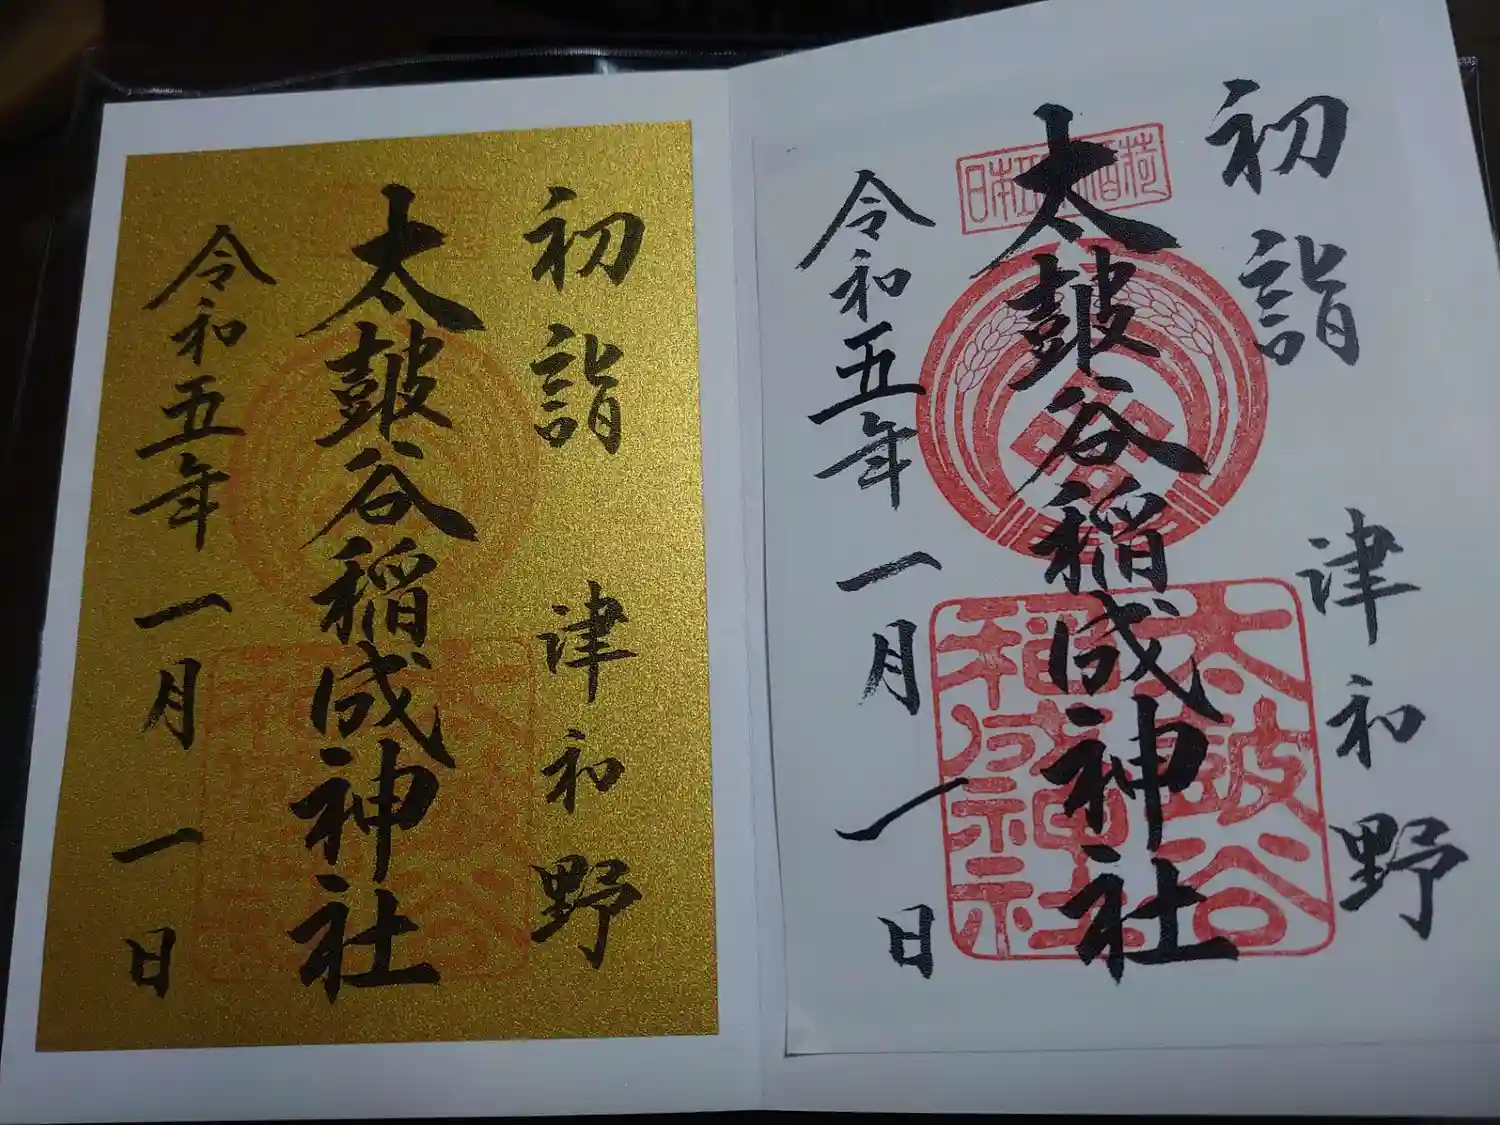 初詣 津和野
太皷谷稲成神社
令和五年一月一日
初詣 津和野
太皷谷稲成神社
令和五年一月一日
太皷谷
稲成神社